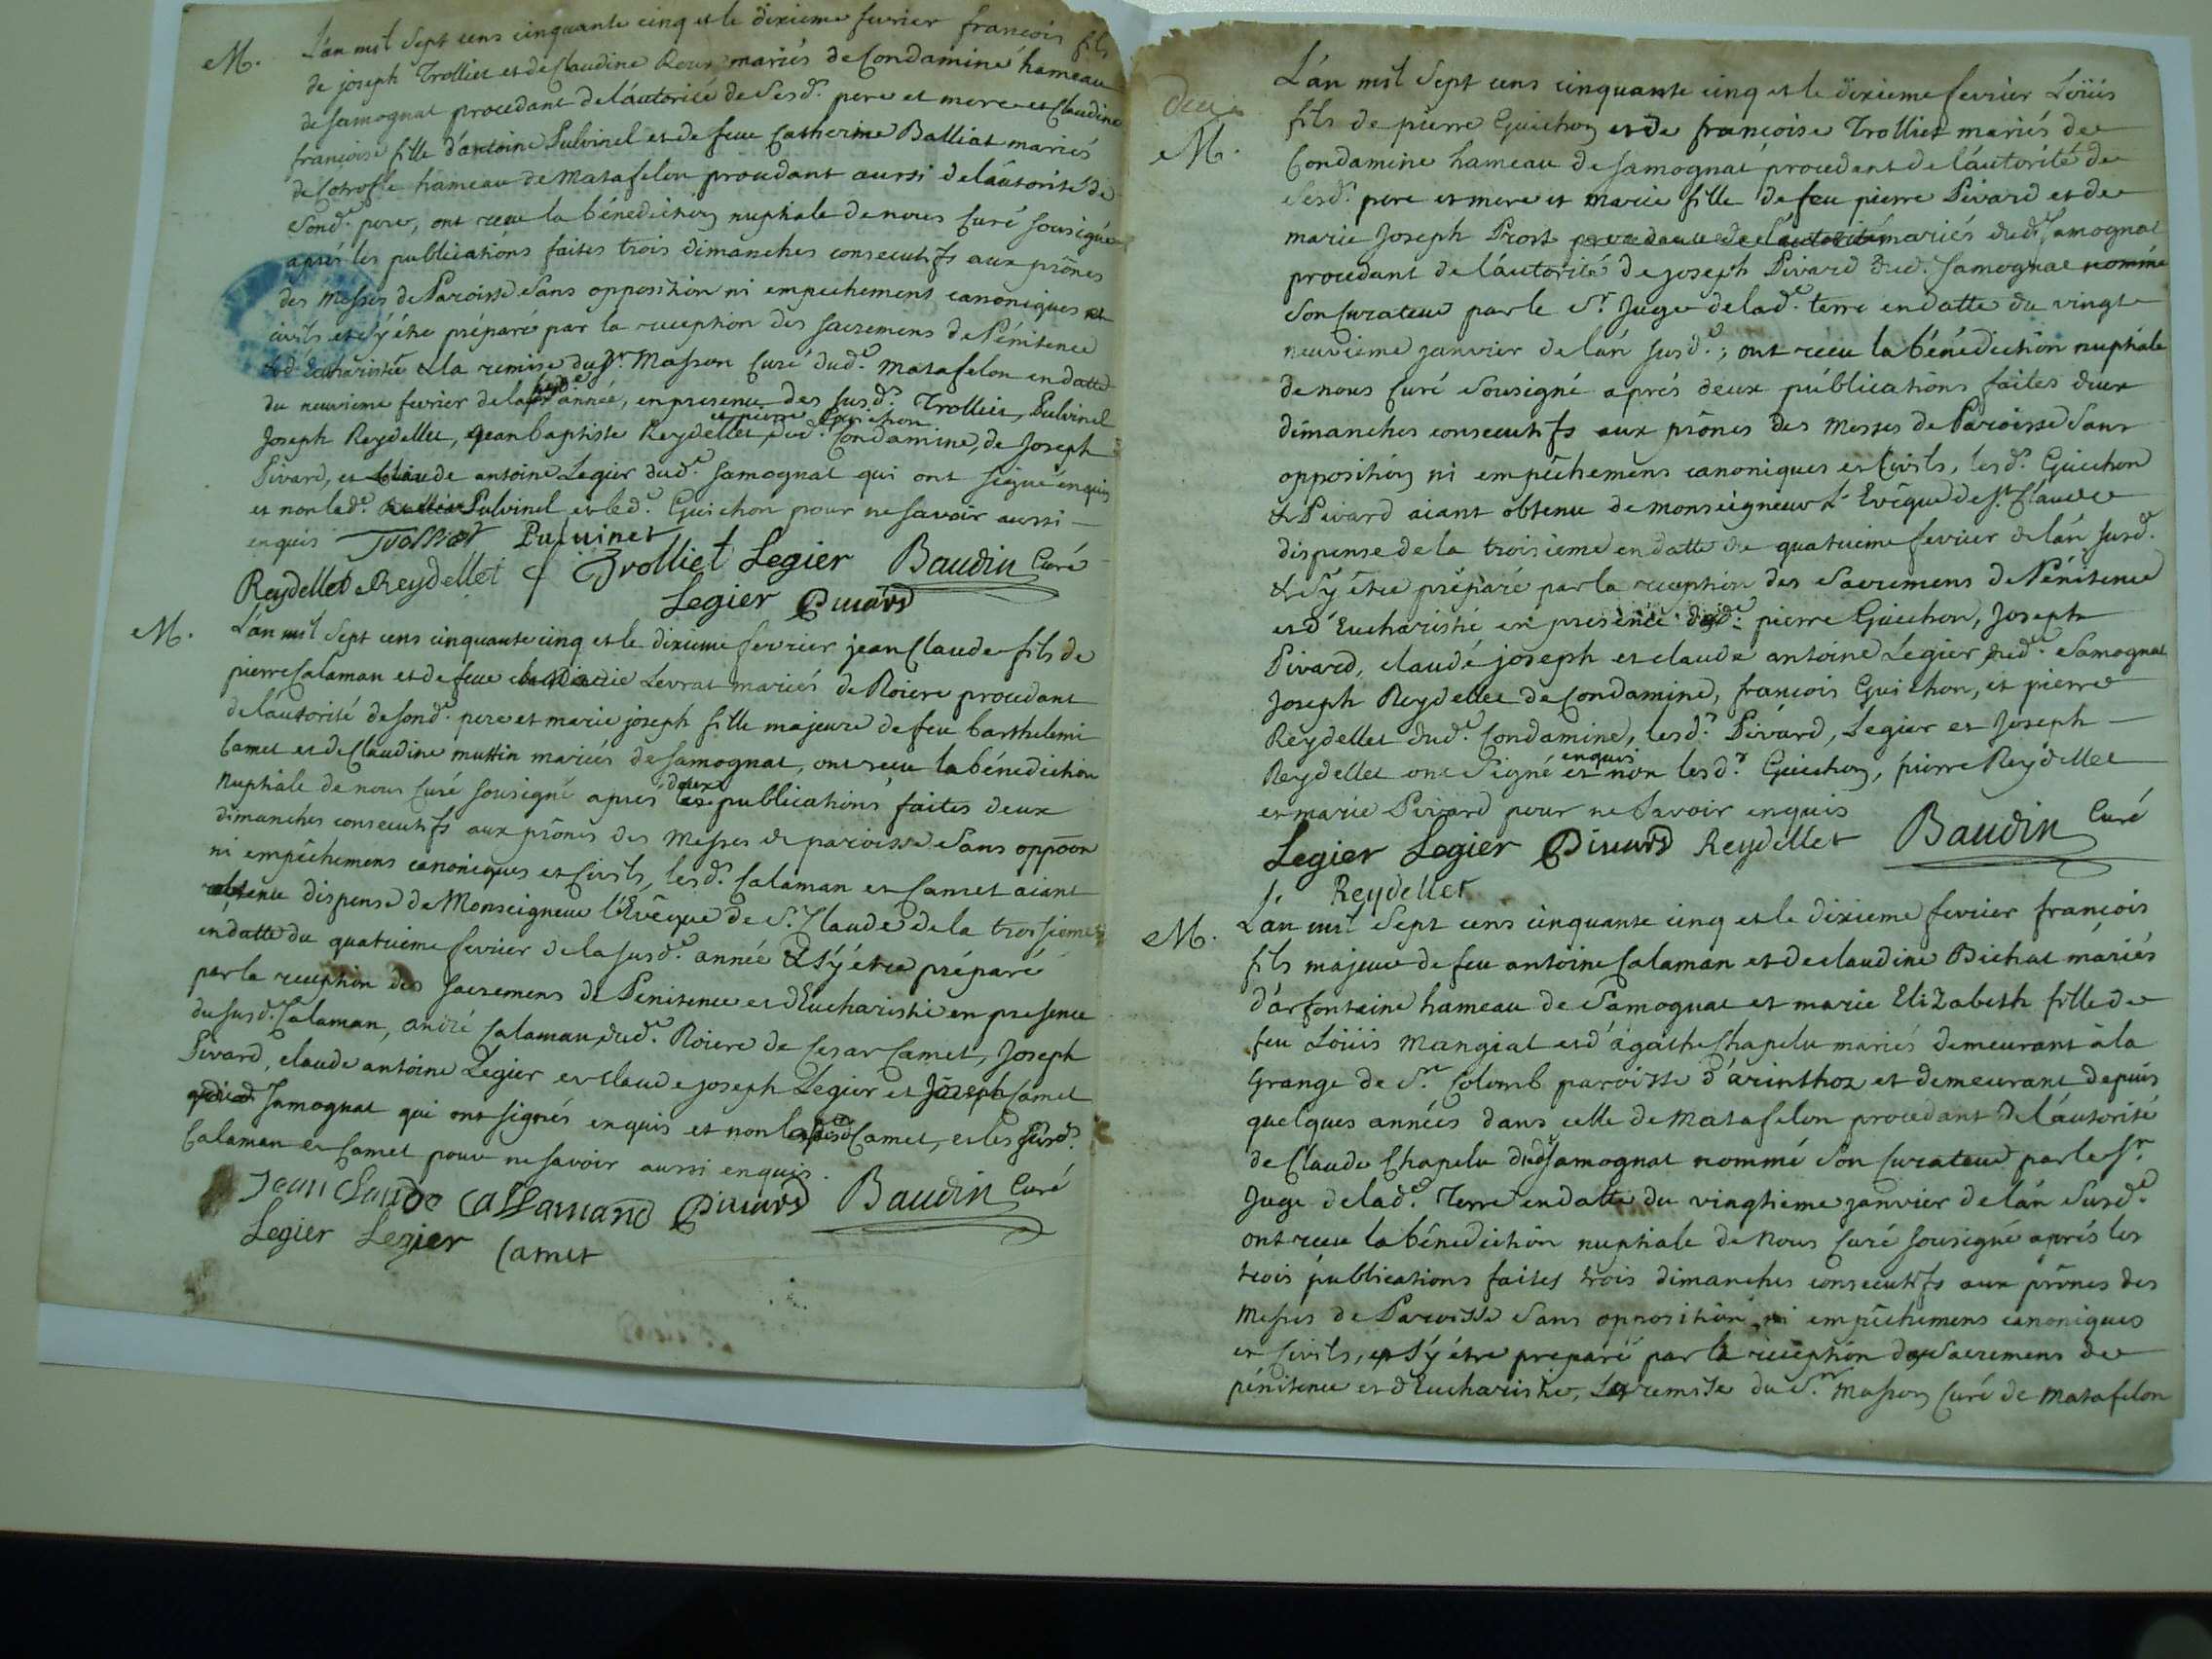 M. L'an mil Sept cens cinquante cinq et le dixieme fevrier françois fils
de joseph Trolliet et de Claudine Roux mariés de Condamine hameau
de Samognat procedant de l'autorité de Sesd.s pere et mere et Claudine
françoise fille d'antoine Pulvinel et de feue Catherine Balliat mariés
de hameau de Matafelon procedant aussi de l'autorité de
Sond.e pere, ont receu la bénediction nuptiale de nous Curé sousigné
aprés les publications faites trois dimanches consecutifs aux prônes
des Messes de Paroisse Sans opposition ni empechemens canoniques et
civils et s'y étre préparé par la reception des sacremens de Pénitence
et d'Eucharistie & la remise du Sr. Masson Curé dud.e Matafelon en datte
du neuvieme fevrier de la année, en presence des susd.s Trolliet, Pulvinel
Joseph Reydellet, jean baptiste Reydellet, et pierre Guichon dud.e Condamine, de Joseph
Pivard, et Claude antoine Legier dud.e Samognat qui ont signé enquis
et non lad.e Pulvinel et led.e Guichon pour ne savoir aussi
enquis Trolliet Puluinet
Reydellet Reydellet f Trolliet Legier Baudin Curé
Legier Piuard
M. L'an mil Sept cens cinquante cinq et le dixieme fevrier jean Claude fils de
pierre Calaman et de feue Levrat mariés de Roiere procedant
de l'autorité de sond.e pere et marie joseph fille majeure de feu barthelemi
Camet et de Claudine muttin mariés de Samognat, ont receu la bénediction
Nuptiale de nous Curé sousigné aprés deux publications faites deux
dimanches consecutifs aux prônes des Messes de paroisse Sans oppoon
ni empêchemens canoniques et Civils, lesd.s Calaman et Camet aiant
obtenu dispense de Monseigneur l'Evêque de St. Claude de la troisieme
en datte du quatrieme fevrier de la susd.e année & s'y étre préparé
par la reception des sacremens de Penitence et d'Eucharistie en presence
du susd. Calaman, andré Calaman dud.e Roiere de Cesar Camet, Joseph
Pivard, claude antoine Legier et Claude joseph Legier et Joseph Camet
Samognat qui ont signés enquis et non Camet, et les susd.s
Calaman et Camet pour ne savoir aussi enquis.
Jean Claude Callamand Piuard Baudin Curé
Legier Legier Camet
L'an mil Sept cens cinquante cinq et le dixieme fevrier Löüis
fils de pierre Guichon et de françoise Trolliet mariés de
M. Condamine hameau de Samognat procedent de l'autorité de
Sesd.s pere et mere et marie fille de feu pierre Pivard et de
marie Joseph Prost procedante de l'autorité mariés dud.e Samognat
procedant de l'autorité de joseph Pivard dud. Samognat nommé
Son Curateur par le Sr. Juge de lad.e terre en datte du vingt
neuvieme janvier de l'an susd.e; ont receu la bénédiction nuptiale
de nous Curé Sousigné aprés deux publications faites deux
dimanches consecutifs aux prônes des Messes de Paroisse Sans
opposition ni empêchemens canoniques et Civils, lesd.s Guichon
& Pivard aiant obtenu de monseigneur L'Evêque de St. Claude
dispense de la troisieme en datte du quatrieme fevrier de l'an susd.e
& s'y étre préparé par la reception des Sacremens de Pénitence
et d'Eucharistie en presence dud.e pierre Guichon, Joseph
Pivard, claude joseph et claude antoine Légier dud.e Samognat
Joseph Reydellet de Condamine, françois Guichon, et pierre
Reydellet dud.e Condamine, lesd.s Pivard, Légier et Joseph
Reydellet ont Signé enquis et non lesd.s Guichon, pierre Reydellet
et marie Pivard pour ne Savoir enquis
Legier Legier Piuard Reydellet Baudin Curé
J. Reydellet
M. L'an mil Sept cens cinquante cinq et le dixieme fevrier françois
fils majeur de feu antoine Calaman et de claudine Bichat mariés
d'arfontaine hameau de Samognat et marie Elizabeth fille de
feu Löüis Mangiat et d'ágathe Chapelu mariés demeurant à la
Grange de St. Colomb paroisse d'arinthoz et demeurant depuis
quelques années dans celle de Matafelon procedant de l'autorité
de Claude Chapelu dud.e Samognat nommé Son Curateur par le Sr.
Juge de lad.e Terre en datte du vingtieme janvier de l'an Susd.e
ont receu la bénediction nuptiale de Nous Curé sousigné aprés les
trois publications faites trois dimanches consecutifs aux prônes des
Messes de Paroisse Sans opposition ni empêchemens canoniques
et Civils, et s'y étre preparé par la réception des Sacremens de
pénitence et d'Eucharistie, La remise du Sr. Masson Curé de Matafelon